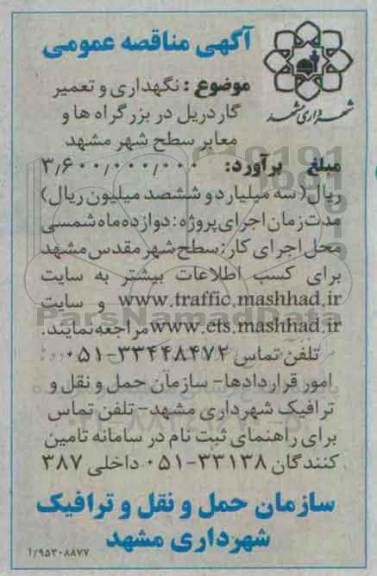 آگهی مناقصه عمومی
شهرداری مشهد
موضوع : نگهداری و تعمیر
گاردریل در بزرگراه ها و
معابر سطح شهر مشهد
مبلغ برآورد: ۳٫۶۰۰٫۰۰۰٫۰۰۰
ریال (سه میلیارد و ششصد میلیون ریال)
مدت زمان اجرای پروژه : دوازده ماه شمسی
محل اجرای کار : سطح شهر مقدس مشهد
برای کسب اطلاعات بیشتر به سایت
www.traffic.mashhad.ir و سایت
www.ets.mashhad.ir مراجعه نمایند.
تلفن تماس ۳۳۴۴۸۴۷۲-۰۵۱
امور قراردادها- سازمان حمل و نقل و
ترافیک شهرداری مشهد- تلفن تماس
برای راهنمای ثبت نام در سامانه تامین
کنندگان ۳۳۱۳۸-۰۵۱ داخلی ۳۸۷
سازمان حمل و نقل و ترافیک
شهرداری مشهد
۱/۹۵۲۰۸۸۷۷
ParsNamadData